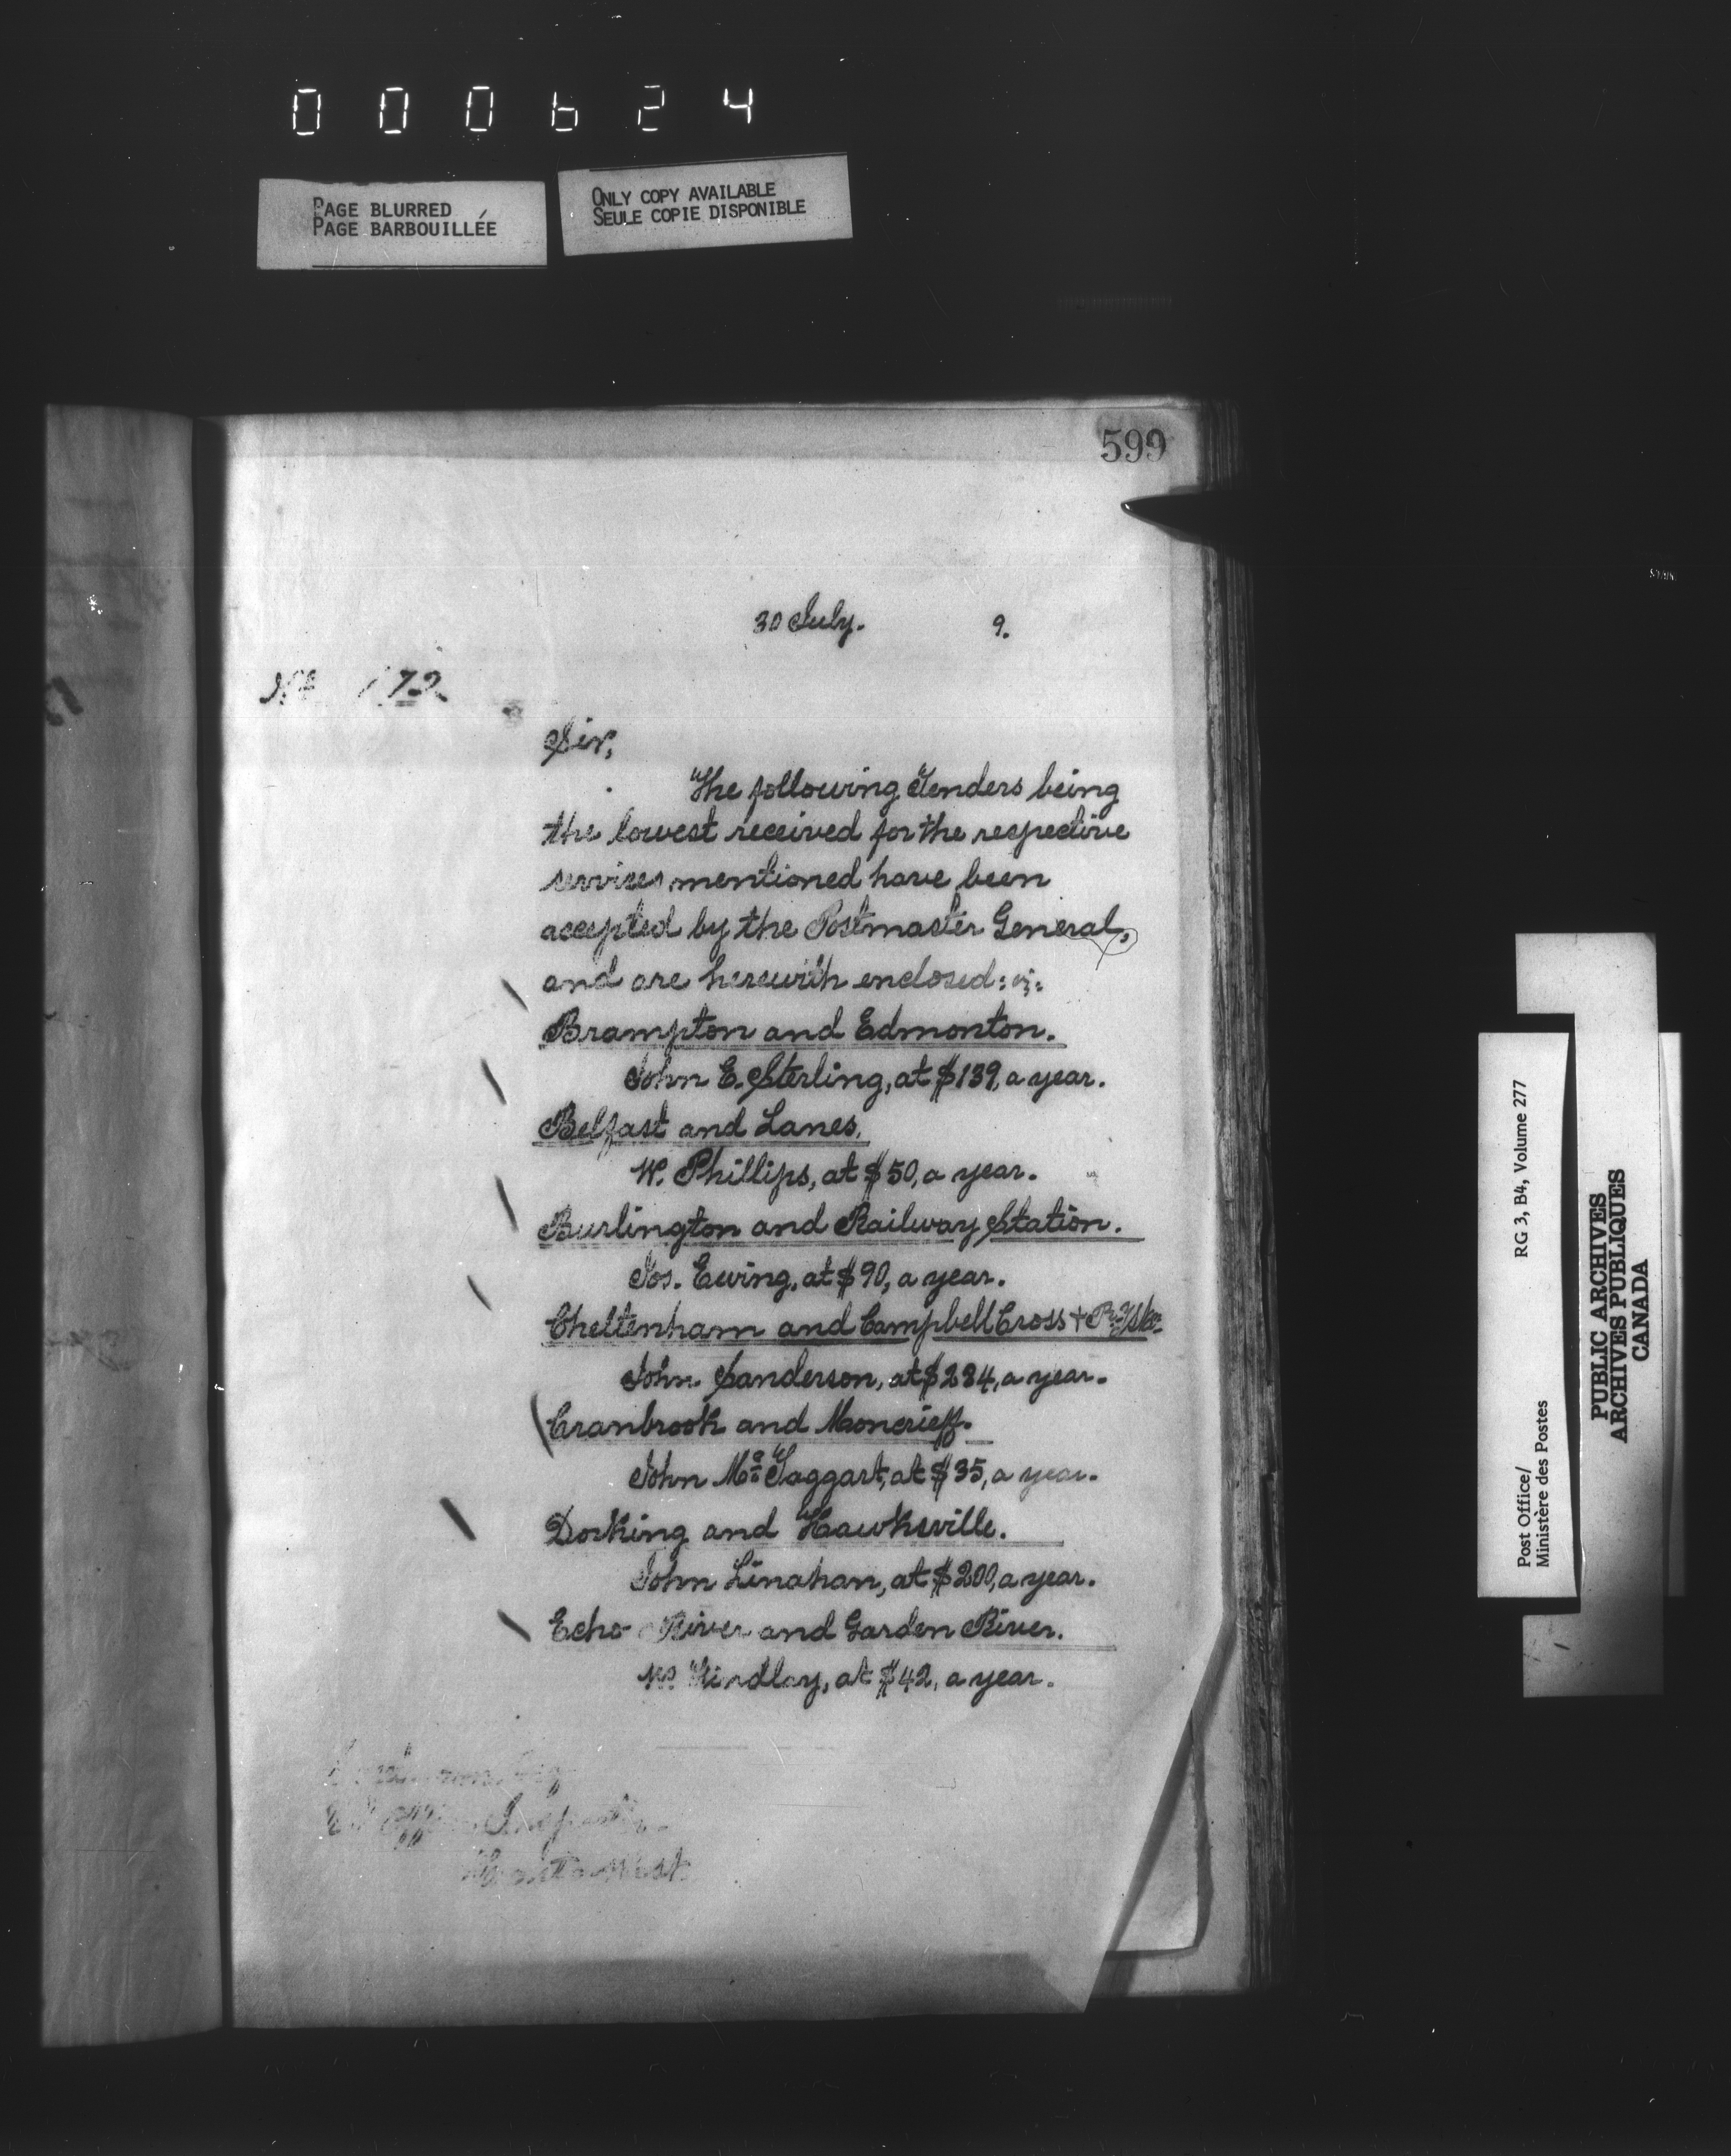 000624
PAGE BLURRED
PAGE BARBOUILLÉE
ONLY COPY AVAILABLE
SEULE COPIE DISPONIBLE
599
30 July. 9.
No 172
Sir,
The following Tenders being
the lowest received for the respective
services mentioned have been
accepted by the Postmaster General,
and are herewith enclosed: viz:
Brampton and Edmonton.
John E. Sterling, at $139, a year.
Belfast and Lanes.
W. Phillips, at $50, a year.
Burlington and Railway Station.
Jos. Ewing, at $90, a year.
Cheltenham and Campbell Cross +
John Sanderson, at $234, a year.
Cranbrook and Moncrieff.
John McTaggart, at $35, a year.
Dorking and Hawksville.
John Linahan, at $200, a year.
Echo River and Garden River.
at $42, a year.
Office Inspector
RG 3, B4, Volume 277
Post Office/
Ministère des Postes
PUBLIC ARCHIVES
ARCHIVES PUBLIQUES
CANADA